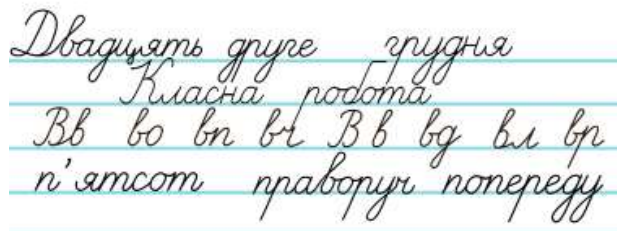 Двадцять друге грудня
Класна робота
Вв во вп вч Вв вд вл вр
п'ятсот праворуч попереду